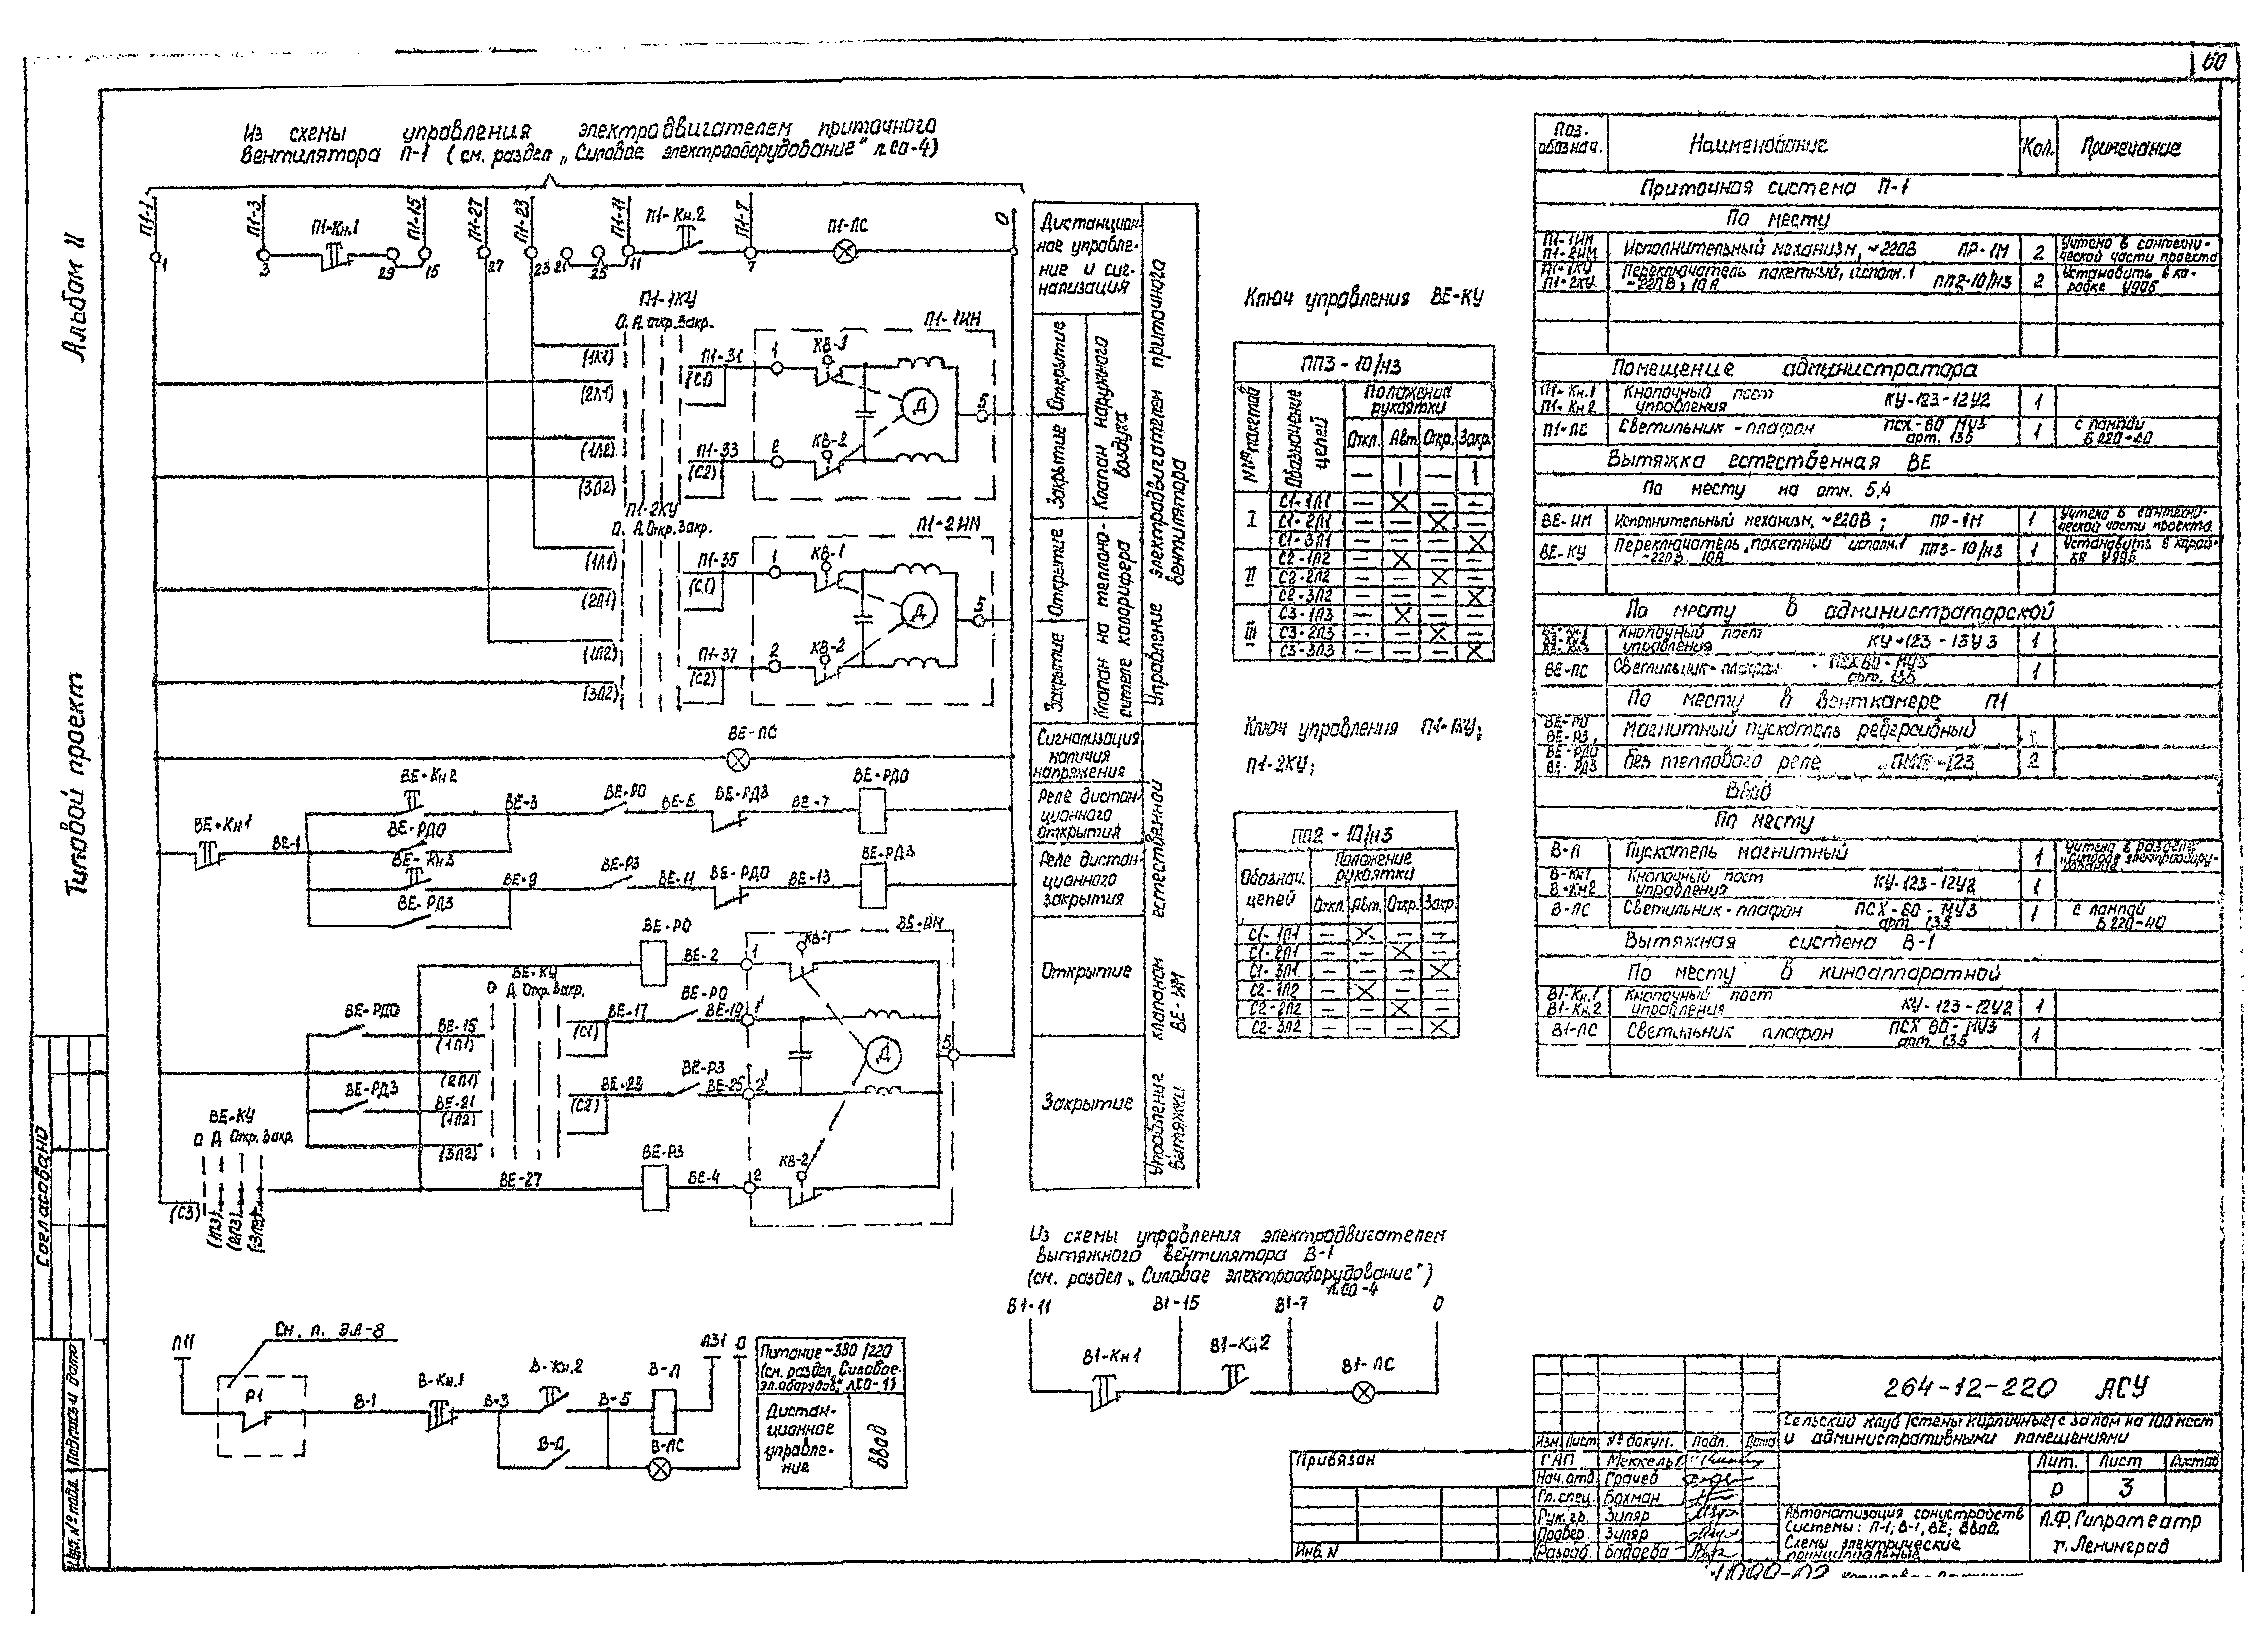 60
Альбом II
Типовой проект
Согласовано
Инв. № подл.
Подпись и дата
Из схемы управления электродвигателем приточного
вентилятора П-1 (см. раздел „Силовое электрооборудование" л.СО-4)
П1-1
П1-3
П1-15
П1-27
П1-23
П1-11
П1-7
0
П1-Кн.1
П1-Кн.2
П1-ЛС
1
3
29
15
27
23
21
25
11
7
П1-1КУ
О. А. Откр. Закр.
П1-1ИМ
(1Л1)
П1-31
(С1)
1
КВ-1
(2Л1)
Д
5
(1Л2)
П1-33
(С2)
2
КВ-2
(3Л2)
П1-2КУ
О. А. Откр. Закр.
П1-2ИМ
(1Л1)
П1-35
(С1)
1
КВ-1
(2Л1)
Д
5
(1Л2)
П1-37
(С2)
2
КВ-2
(3Л2)
ВЕ-ЛС
ВЕ-Кн1
ВЕ-1
ВЕ-Кн2
ВЕ-РДО
ВЕ-3
ВЕ-РО
ВЕ-5
ВЕ-РДЗ
ВЕ-7
ВЕ-РДО
ВЕ-Кн3
ВЕ-РДЗ
ВЕ-9
ВЕ-РЗ
ВЕ-11
ВЕ-РДО
ВЕ-13
ВЕ-РДЗ
ВЕ-РО
ВЕ-2
1
КВ-1
ВЕ-ИМ
ВЕ-КУ
О Д Откр. Закр.
ВЕ-РДО
ВЕ-15
(1Л1)
(С1)
ВЕ-17
ВЕ-РО
ВЕ-19
1'
(2Л1)
Д
5
ВЕ-РДЗ
ВЕ-21
(1Л2)
(С2)
ВЕ-23
ВЕ-РЗ
ВЕ-25
2'
(3Л2)
ВЕ-КУ
О Д Откр. Закр.
ВЕ-27
ВЕ-РЗ
ВЕ-4
2
КВ-2
(С3)
(1Л3)
(2Л3)
(3Л3)
Дистанцион-
ное управле-
ние и сиг-
нализация
Открытие
Закрытие
Клапан наружного
воздуха
Открытие
Закрытие
Клапан на теплоно-
сителе калорифера
Управление электродвигателем приточного
вентилятора
Сигнализация
наличия
напряжения
Реле дистан-
ционного
открытия
Реле дистан-
ционного
закрытия
Открытие
Закрытие
Управление клапаном естественной
вытяжки ВЕ-ИМ
Ключ управления ВЕ-КУ
ПП3-10/Н3
№№ пакетов
Обозначение
цепей
Положение
рукоятки
Откл. Авт. Откр. Закр.
I
С1-1Л1
С1-2Л1
С1-3Л1
II
С2-1Л2
С2-2Л2
С2-3Л2
III
С3-1Л3
С3-2Л3
С3-3Л3
Ключ управления П1-1КУ;
П1-2КУ;
ПП2-10/Н3
Обознач.
цепей
Положение
рукоятки
Откл. Авт. Откр. Закр.
С1-1Л1
С1-2Л1
С1-3Л1
С2-1Л2
С2-2Л2
С2-3Л2
Поз.
обознач.
Наименование
Кол.
Примечание
Приточная система П-1
По месту
П1-1ИМ
П1-2ИМ
Исполнительный механизм, ~220В ПР-1М
2
Учтено в сантехни-
ческой части проекта
П1-1КУ
П1-2КУ
Переключатель пакетный, исполн.1
~220В; 10А ПП2-10/Н3
2
Установить в ко-
робке У996
Помещение администратора
П1-Кн.1
П1-Кн.2
Кнопочный пост
управления КУ-123-12У2
1
П1-ЛС
Светильник-плафон ПСХ-60 МУ3
арт. 135
1
с лампой
Б220-40
Вытяжка естественная ВЕ
По месту на отм. 5,4
ВЕ-ИМ
Исполнительный механизм, ~220В; ПР-1М
1
Учтено в сантехни-
ческой части проекта
ВЕ-КУ
Переключатель пакетный исполн.1 ПП3-10/Н3
~220В, 10А
1
Установить в короб-
ке У996
По месту в администраторской
Кнопочный пост
управления КУ-123-13У3
1
ВЕ-ЛС
Светильник-плафон ПСХ60-МУ3
арт. 135
1
По месту в венткамере П1
ВЕ-РО
ВЕ-РЗ,
ВЕ-РДО
ВЕ-РДЗ
Магнитный пускатель реверсивный
без теплового реле ПМЕ-123
2
Ввод
По месту
В-П
Пускатель магнитный
1
Учтено в разделе
„Силовое электрообору-
дование"
В-Кн1
В-Кн2
Кнопочный пост
управления КУ-123-12У2
1
В-ЛС
Светильник-плафон ПСХ-60-МУ3
арт. 135
1
с лампой
Б220-40
Вытяжная система В-1
По месту в киноаппаратной
В1-Кн.1
В1-Кн.2
Кнопочный пост
управления КУ-123-12У2
1
В1-ЛС
Светильник плафон ПСХ 60-МУ3
арт. 135
1
Из схемы управления электродвигателем
вытяжного вентилятора В-1
(см. раздел „Силовое электрооборудование")
л.СО-4
В1-11
В1-15
В1-7
0
В1-Кн1
В1-Кн2
В1-ЛС
См. л. ЭЛ-8
Л11
Р1
В-1
В-Кн.1
В-3
В-Кн.2
В-П
В-5
В-П
В-ЛС
Л31
0
Питание ~380/220
(см. раздел „Силовое
эл.оборудов." л.СО-1)
Дистан-
ционное
управле-
ние
Ввод
Привязан
Инв. N
264-12-220 АСУ
Сельский клуб (стены кирпичные) с залом на 100 мест
и административными помещениями
Изм. Лист № докум. Подп. Дата
ГАП
Нач. отд. Грачев
Гл. спец. Бохман
Рук. гр. Зиляр
Провер. Зиляр
Разраб. Бадаева
Лит. Лист Листов
Р 3
Автоматизация санустройств
Системы: П-1; В-1, ВЕ; Ввод.
Схемы электрические
принципиальные
Л.Ф. Гипротеатр
г. Ленинград